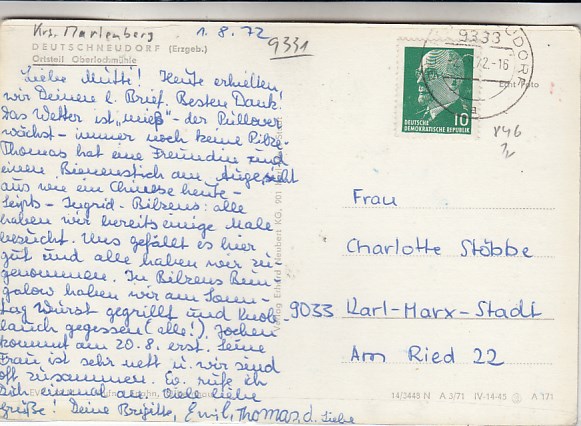 Krs. Marienberg
1.8.72
9331
DEUTSCHNEUDORF (Erzgeb.)
Ortsteil Oberlochmühle
Liebe Mutti! Heute erhielten
wir Deinen l. Brief. Besten Dank!
Das Wetter ist "mieß" - der Pullover
wächst - immer noch keine Pilze.
Thomas hat eine Freundin und
einen Bienenstich am Auge, sieht
aus wie ein Chinese heute -
Ingrid - Bilzens: alle
haben wir bereits einige Male
besucht. Uns gefällt es hier
gut und alle haben wir zu-
genommen. In Bilzens Bun-
galow haben wir am Sonn-
tag Wurst gegrillt und Knob-
lauch gegessen (alle!). Jochen
kommt am 20.8. erst. Seine
Frau ist sehr nett u. wir sind
oft zusammen. Ev. rufe ich
Dich einmal an. Viele liebe
Grüße! Deine Brigitte, Emil, Thomas
9333
DORF
72.-16
10
DEUTSCHE
DEMOKRATISCHE REPUBLIK
Echt Foto
Frau
Charlotte Stöbbe
9033 Karl-Marx-Stadt
Am Ried 22
Verlag Erhard Neubert KG, 901
14/3448 N A 3/71 IV-14-45 A 171